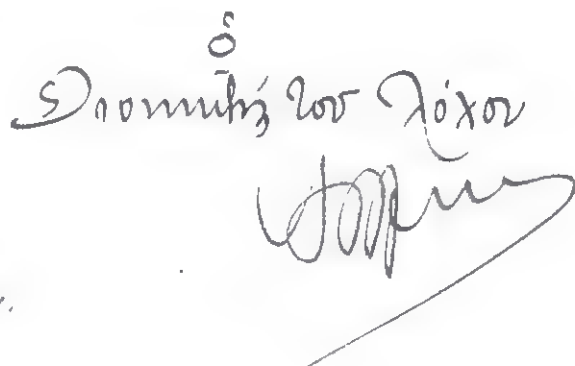 ὁ
Διοικητής του Λόχου